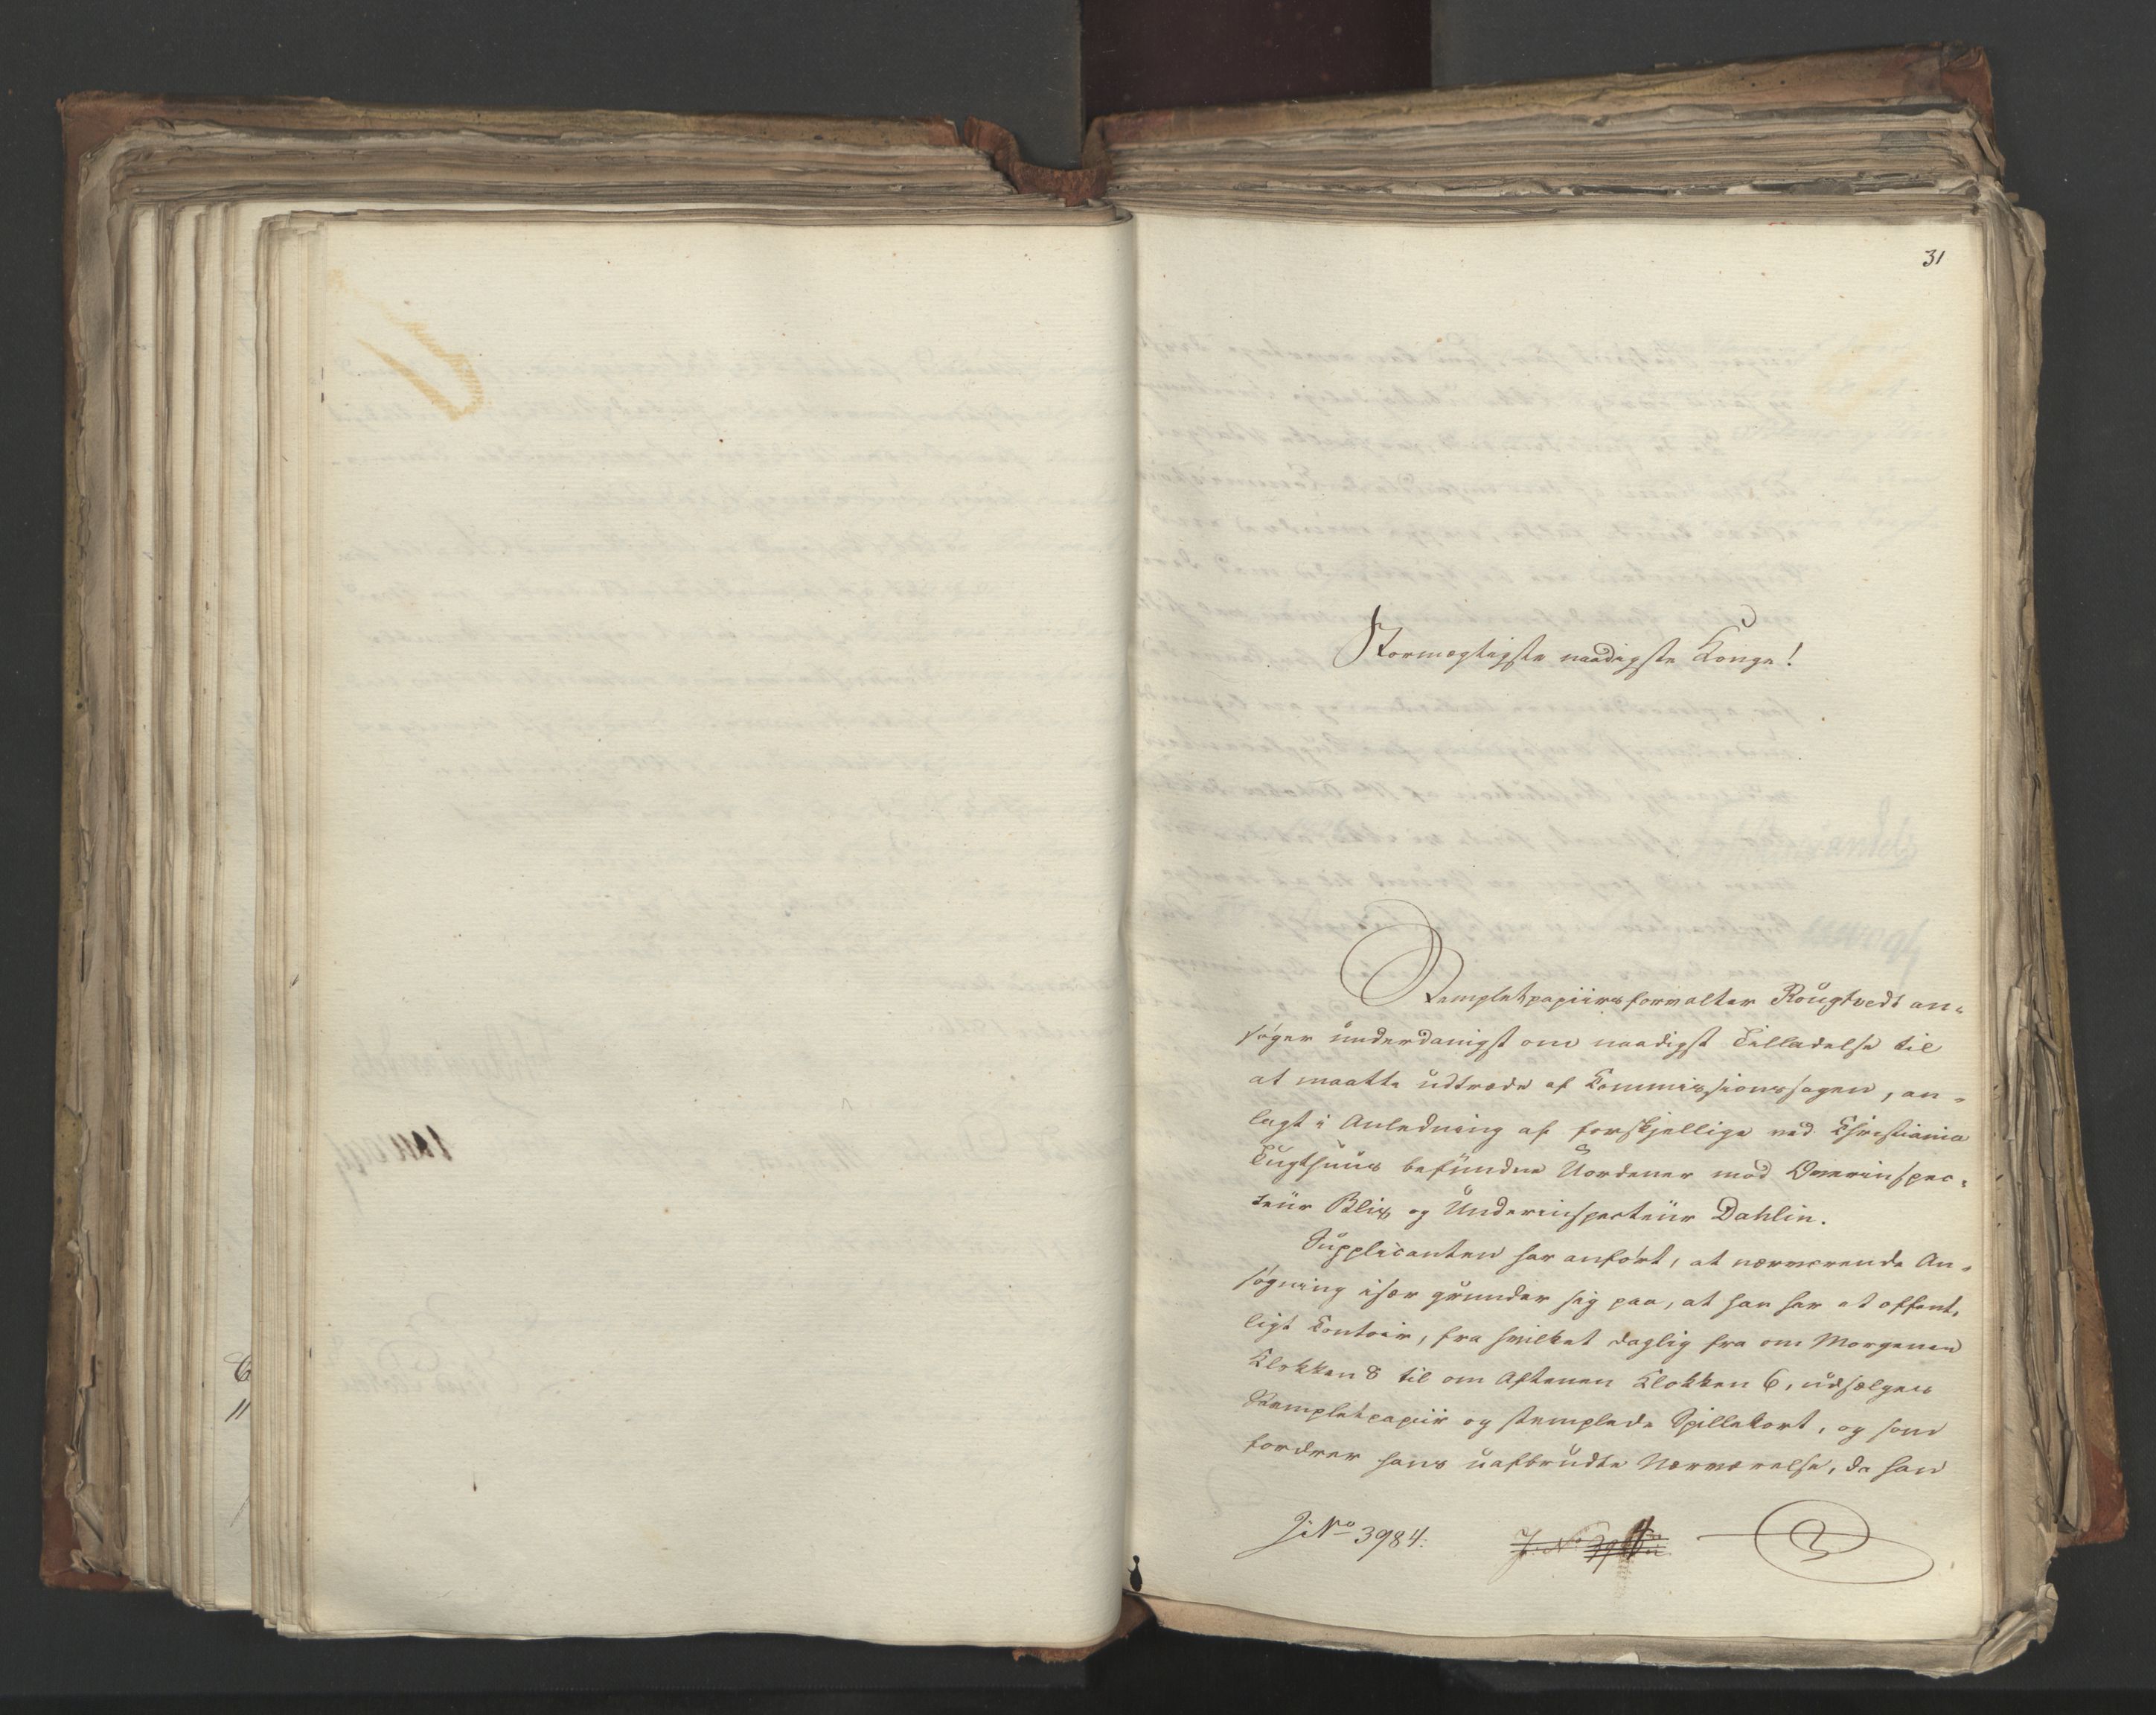 31
Stormægtigste naadigste Konge!
Stempletpapiirsforvalter Rougtvedt an-
søger underdanigst om naadigst Tilladelse til
at maatte udtræde af Commissionssagen, an-
lagt i Anledning af forskjellige ved Christiania
Tugthuus befundne Uordener mod Overinspec-
teur Blix og Underinspecteur Dahlin.
Supplicanten har anført, at nærværende An-
søgning især grunder sig paa, at han har et offent-
ligt Contoir, fra hvilket daglig fra om Morgenen
Klokken 8 til om Aftenen Klokken 6, udsælges
Stempletpapiir og stemplede Spillekort, og som
fordrer hans uafbrudte Nærværelse, da han
J: No 3984.